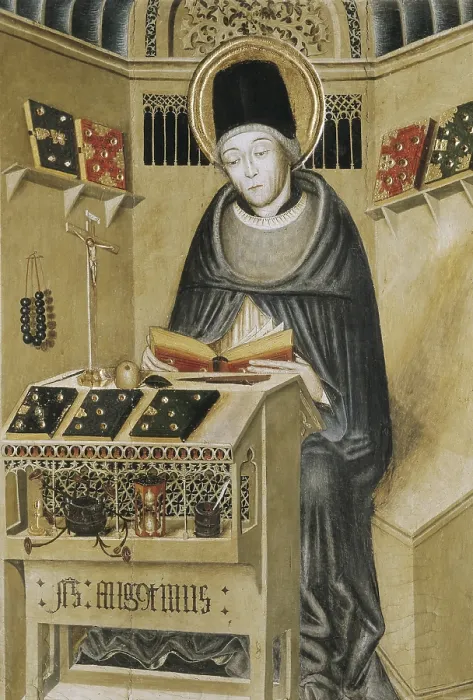 : scs : augustinus :